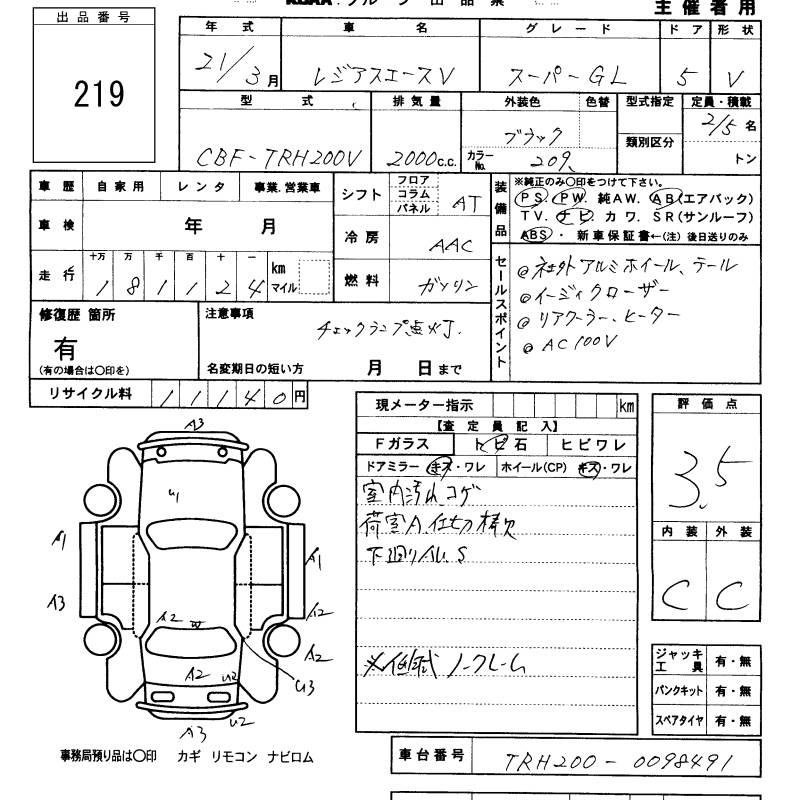 主催者用
出品番号
219
年式 車名 グレード ドア 形状
21/3月 レジアスエースV スーパーGL 5 V
型式 排気量 外装色 色替 型式指定 定員・積載
CBF-TRH200V 2000c.c. ブラック 類別区分 2/5名
カラーNo. 209 トン
車歴 自家用 レンタ 事業.営業車
シフト フロア コラム パネル AT
装備品 ※純正のみ○印をつけて下さい。
PS. PW. 純AW. AB(エアバック)
TV. ナビ・カワ. SR(サンルーフ)
ABS・新車保証書←(注)後日送りのみ
車検 年 月
冷房 AAC
走行 十万 万 千 百 十 一
1 8 1 1 2 4 km マイル
燃料 ガソリン
セールスポイント
@社外アルミホイール、テール
@イージィクローザー
@リアクーラー、ヒーター
@AC100V
修復歴 箇所
有
(有の場合は○印を)
注意事項
チェックランプ点灯.
名変期日の短い方 月 日まで
リサイクル料 11140円
現メーター指示 km
【査定員記入】
Fガラス トビ石 ヒビワレ
ドアミラー キズ・ワレ ホイール(CP) キズ・ワレ
室内汚れ.コゲ
荷室A.仕切棒欠
下廻りAU.S
※低試 ノークレーム
評価点
3.5
内装 外装
C C
ジャッキ工具 有・無
パンクキット 有・無
スペアタイヤ 有・無
A3
U1
A1
A1
A3
A2
A2 W
A2
A2 U2
U3
U2
A3
事務局預り品は○印 カギ リモコン ナビロム
車台番号 TRH200-0098491